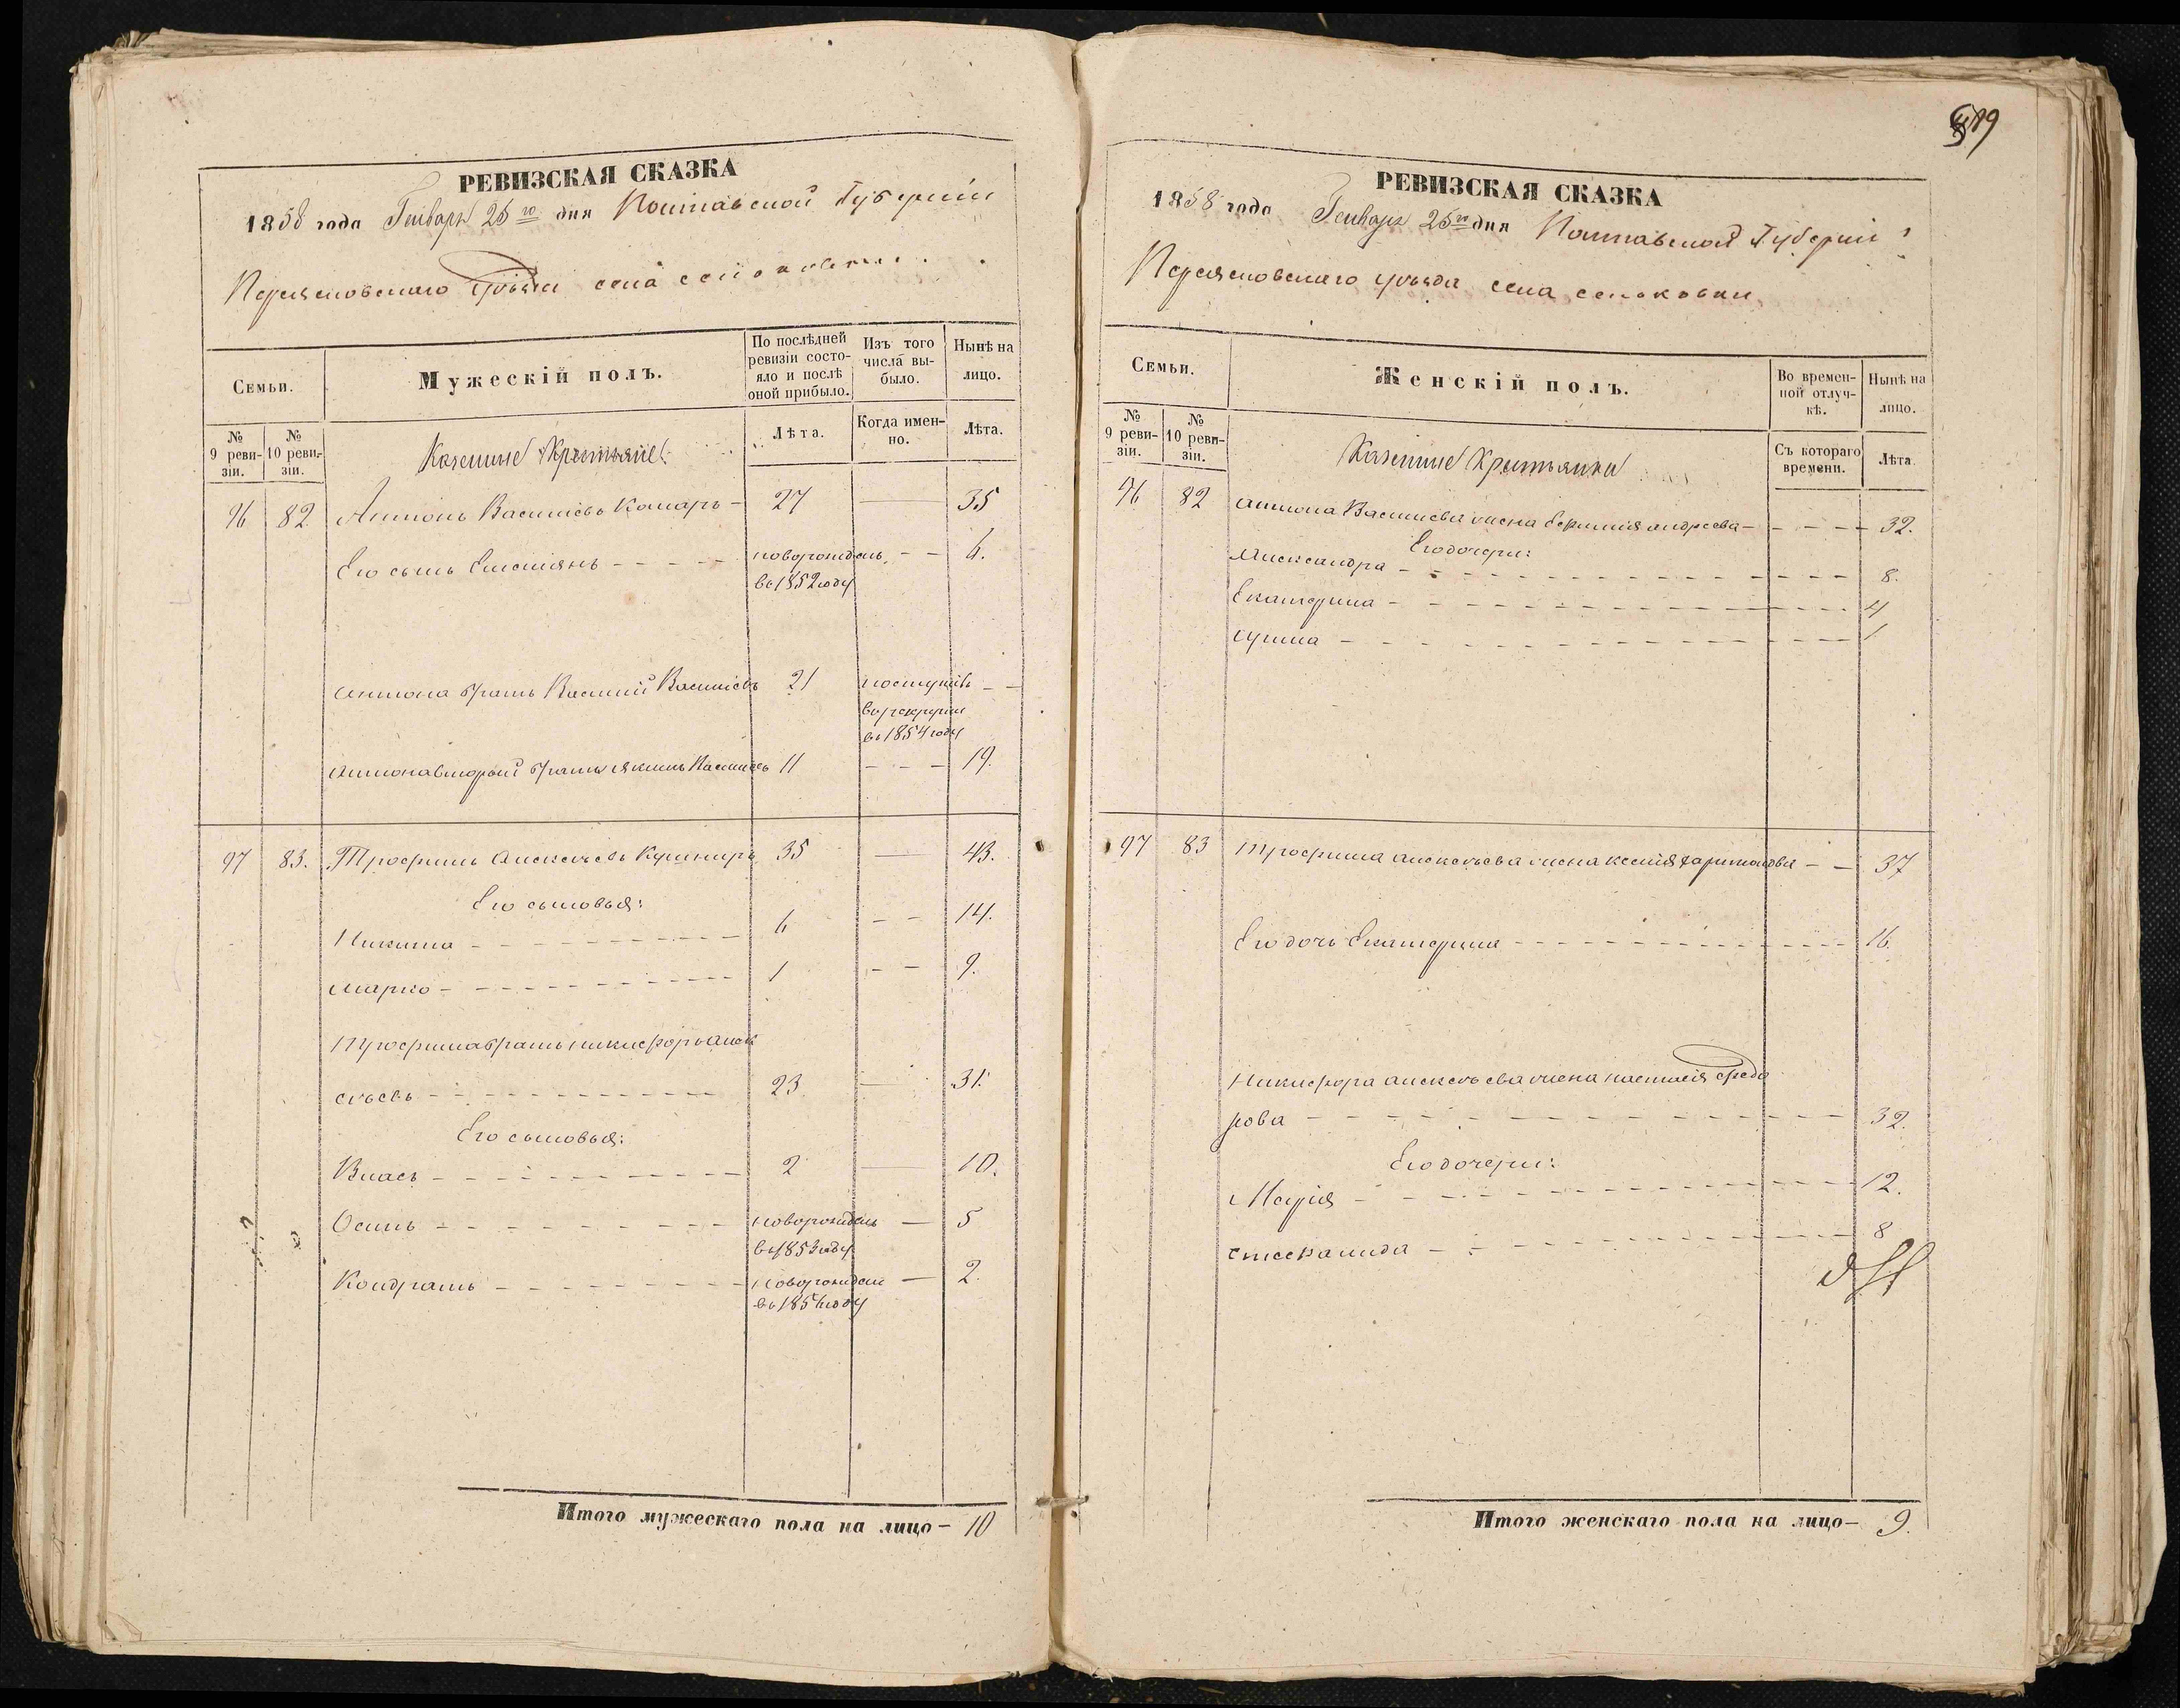 РЕВИЗСКАЯ СКАЗКА
1858 года Генваря 25го дня Полтавской Губернии
Переясловскаго уѣзда села
Семьи.
Мужескій полъ.
По послѣдней ревизіи состояло и послѣ оной прибыло.
Изъ того числа выбыло.
Нынѣ на лицо.
№ 9 ревизіи.
№ 10 ревизіи.
Казенные Крестьяне
Лѣта.
Когда именно.
Лѣта.
96 82 Антонъ Васильевъ Комаръ - 27 — 35
Его сынъ Емельянъ - - - - - новорожденъ - - 6.
въ 1852 году
Антона братъ Василій Васильевъ 21 поступилъ - -
въ рекруты
въ 1854 году
Антона вторый братъ Якимъ Васильевъ 11 - - - 19.
97 83. Трофимъ Алексѣевъ Кушниръ 35 — 43.
Его сыновья:
Никита - - - - - 6 - - 14.
Марко - - - - - 1 - - 9.
Трофима братъ Никифоръ Алек
сѣевъ - - - - - 23 — 31.
Его сыновья:
Власъ - - - - - 2 — 10.
Осипъ - - - - - новорожденъ — 5
въ 1853 году
Кондратъ - - - - - новорожденъ — 2.
въ 1856 году
Итого мужескаго пола на лицо - 10
РЕВИЗСКАЯ СКАЗКА
1858 года Генваря 25го дня Полтавской Губерніи
Переясловскаго уѣзда села
Семьи.
Женскій полъ.
Во временной отлучкѣ.
Нынѣ на лицо.
№ 9 ревизіи.
№ 10 ревизіи.
Казенные Крестьянки
Съ котораго времени.
Лѣта.
96 82 Антона Васильева жена Андреева - - - - 32.
Его дочери:
Александра - - - - - 8.
Екатерина - - - - - 4
Ирина - - - - - 1
97 83 Трофима Алексѣева жена Ксенія Харитонова - - 37
Его дочь Екатерина - - - - - 16.
Никифора Алексѣева жена Настасія Федо
рова - - - - - 32.
Его дочери:
Марія - - - - - 12.
Степанида - - - - - 8
Итого женскаго пола на лицо - 9.